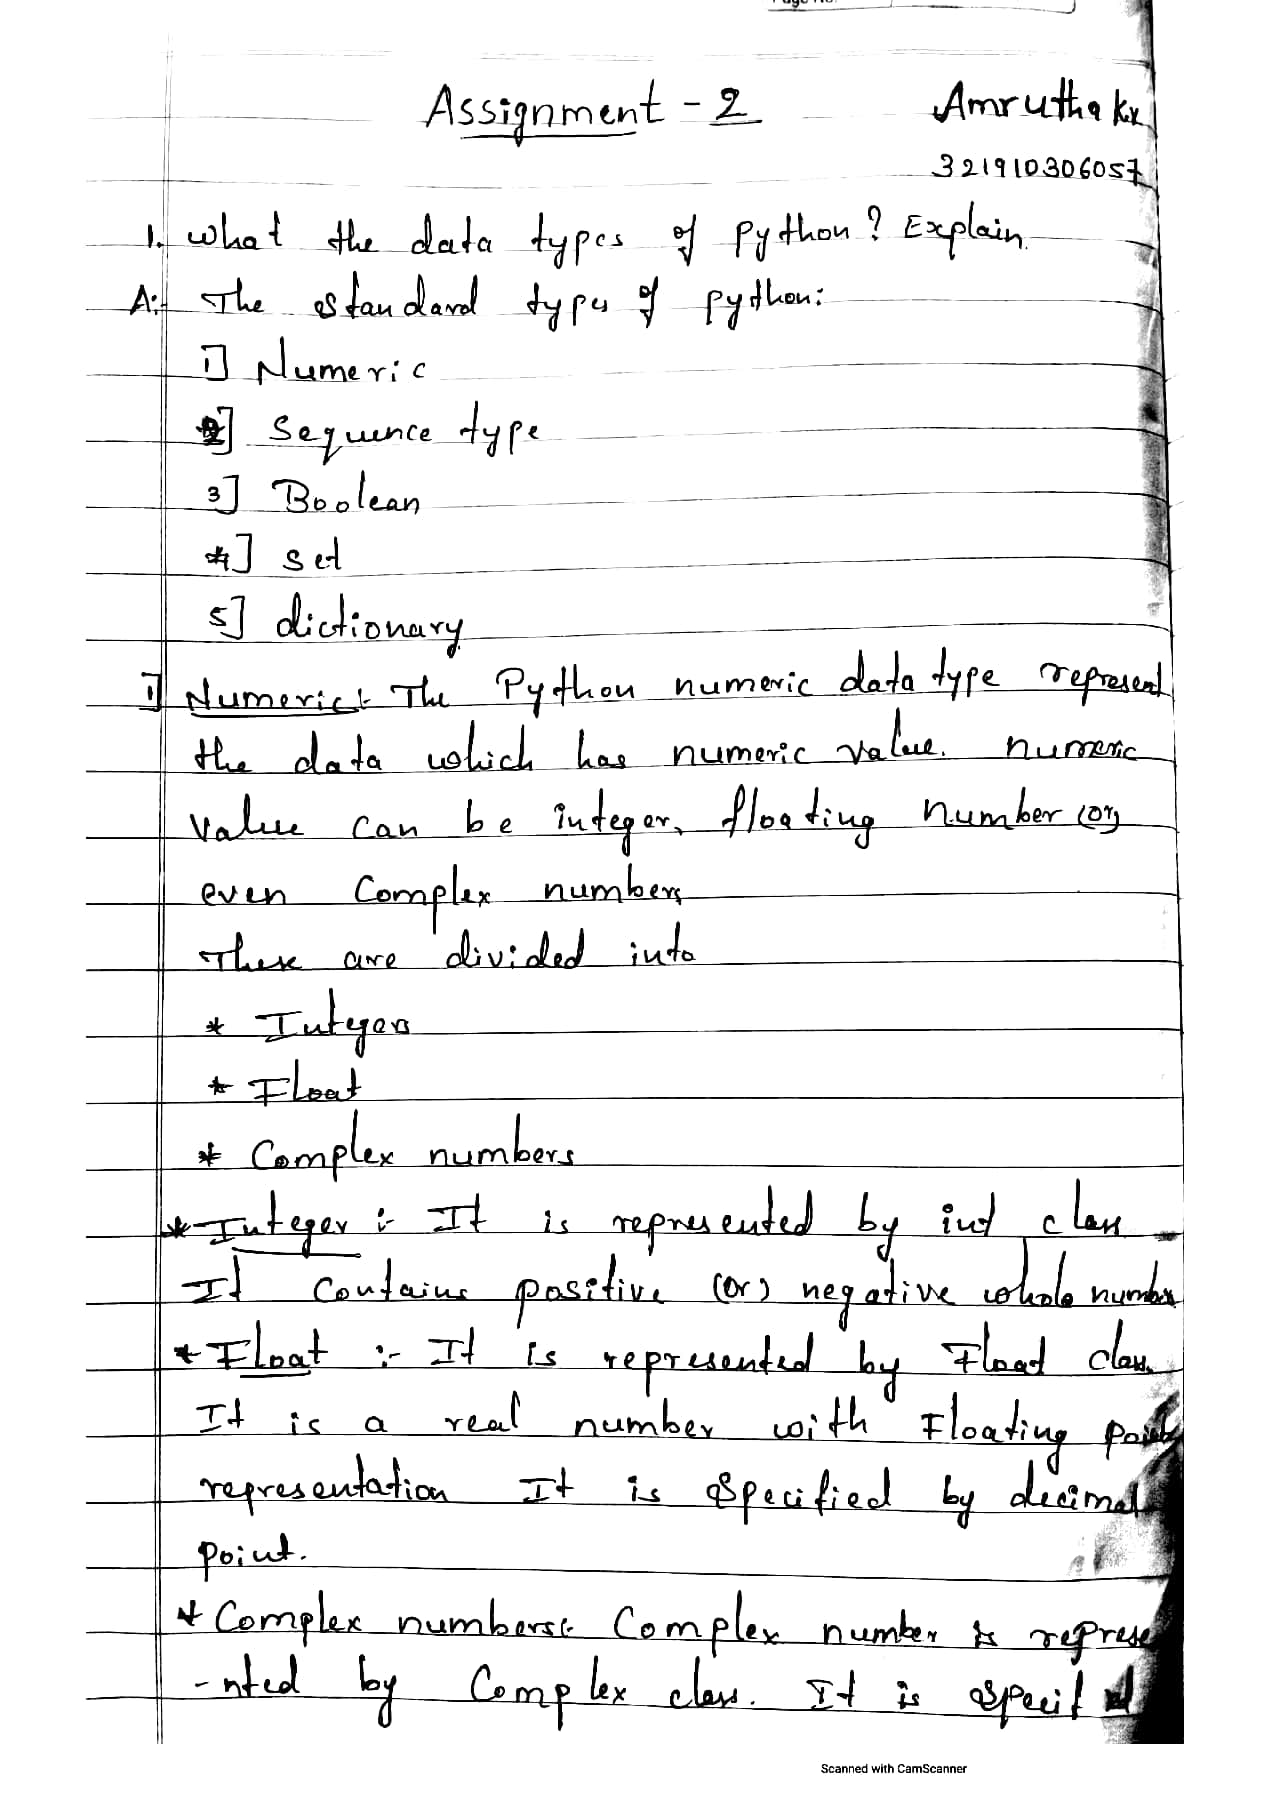 Page No.
Assignment - 2
Amrutha Kx
321910306057
1. What the data types of python? Explain.
A:- The standard types of python:
1] Numeric
2] Sequence type
3] Boolean
4] set
5] dictionary
1] Numeric:- The Python numeric data type represent
the data which has numeric value. numeric
value can be integer, floating number (or)
even complex numbers
These are divided into
* Integers
* Float
* Complex numbers
* Integer :- It is represented by int class
It contains positive (or) negative whole number
* Float :- It is represented by Float class.
It is a real number with Floating point
representation It is specified by decimal
point.
* Complex numbers:- Complex number is represe
-nted by Complex class. It is
Scanned with CamScanner